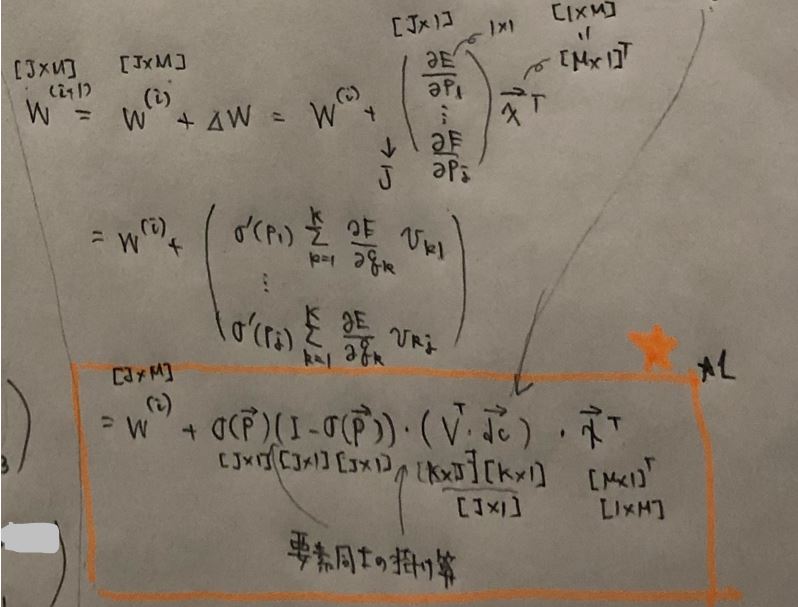 [J×1] 1×1 [1×M]
=
[J×M] [J×M] [M×1]ᵀ
W⁽ⁱ⁺¹⁾ = W⁽ⁱ⁾ + ΔW = W⁽ⁱ⁾ + (∂E/∂P₁ ⋮ ∂E/∂Pⱼ) x⃗ᵀ
↓
J
= W⁽ⁱ⁾ + (σ'(P₁) Σ_{k=1}^{K} ∂E/∂g_k v_{k1}
⋮
σ'(Pⱼ) Σ_{k=1}^{K} ∂E/∂g_k v_{kj})
★1
[J×M]
= W⁽ⁱ⁾ + σ(P⃗)(I-σ(P⃗))・(Vᵀ・dc⃗)・x⃗ᵀ
[J×1][J×1][J×1] [K×J]ᵀ[K×1] [M×1]ᵀ
[J×1] [1×M]
要素同士の掛け算